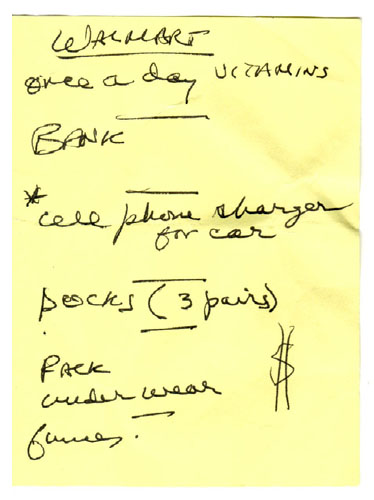 WALMART
once a day VITAMINS
BANK
* cell phone charger
for car
socks (3 pairs)
PACK
underwear
$